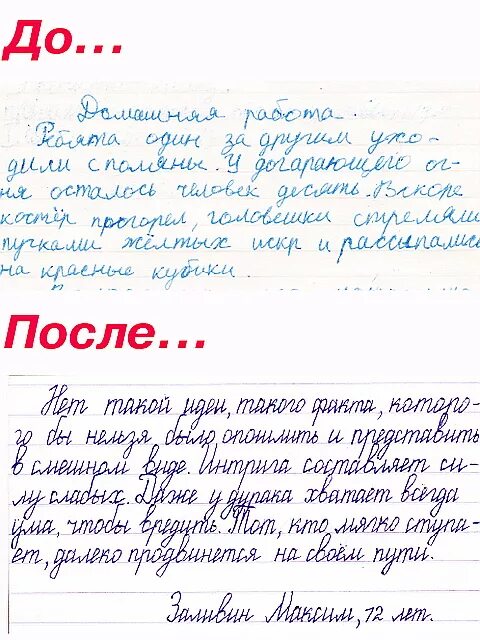 До...
Домашняя работа.
Ребята один за другим ухо-
дили с поляны. У догарающего ог-
ня осталось человек десять. Вскоре
костёр прогорел, головешки стреляли
пучками жёлтых искр и рассыпались
на красные кубики.
После...
Нет такой идеи, такого факта, которо-
го бы нельзя было опошлить и представить
в смешном виде. Интрига составляет си-
лу слабых. Даже у дурака хватает всегда
ума, чтобы вредить. Тот, кто мягко ступа-
ет, далеко продвинется на своём пути.
Заливин Максим, 12 лет.